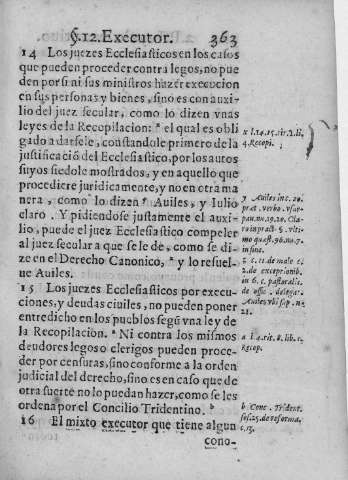 §.12. Executor. 363
14 Los juezes Ecclesiasticos en los casos
que pueden proceder contra legos, no pue
den por si ni sus ministros hazer execucion
en sus personas y bienes, sino es con auxi-
lio del juez secular, como lo dizen vnas
leyes de la Recopilacion: x el qual es obli
gado a darsele, constandole primero de la
justificació del Ecclesiastico, por los autos
suyos siedole mostrados, y en aquello que
procediere juridicamente, y no en otra ma
nera, como lo dizen y Auiles, y Iulio
claro. Y pidiendose justamente el auxi-
lio, puede el juez Ecclesiastico compeler
al juez secular a que se le de, como se di-
ze en el Derecho Canonico, z y lo resuel-
ue Auiles.
15 Los juezes Ecclesiasticos por execu-
ciones, y deudas ciuiles, no pueden poner
entredicho en los pueblos segũ vna ley de
la Recopilacion. a Ni contra los mismos
deudores legos o clerigos pueden proce-
der por censuras, sino conforme a la orden
judicial del derecho, sino es en caso que de
otra suerte no lo puedan hazer, como se les
ordena por el Concilio Tridentino. b
16 El mixto executor que tiene algun
cono-
x l.14.15.tit.1.li.
4.Recopi.
y Auiles in c. 20.
præt. verbo
pan. nu.19.20. Cla-
ro in pract. §. vlti-
mo quæst.96.nu.7.
in fine.
z c. 1. de male c.
2. de exceptionib.
in 6. c. pastoralis.
de offic. delegat.
Auiles vbi sup. nu.
21.
a l.4.tit.8. lib.1.
Recop.
b Conc. Trident.
ses.25. de reforma.
c.13.